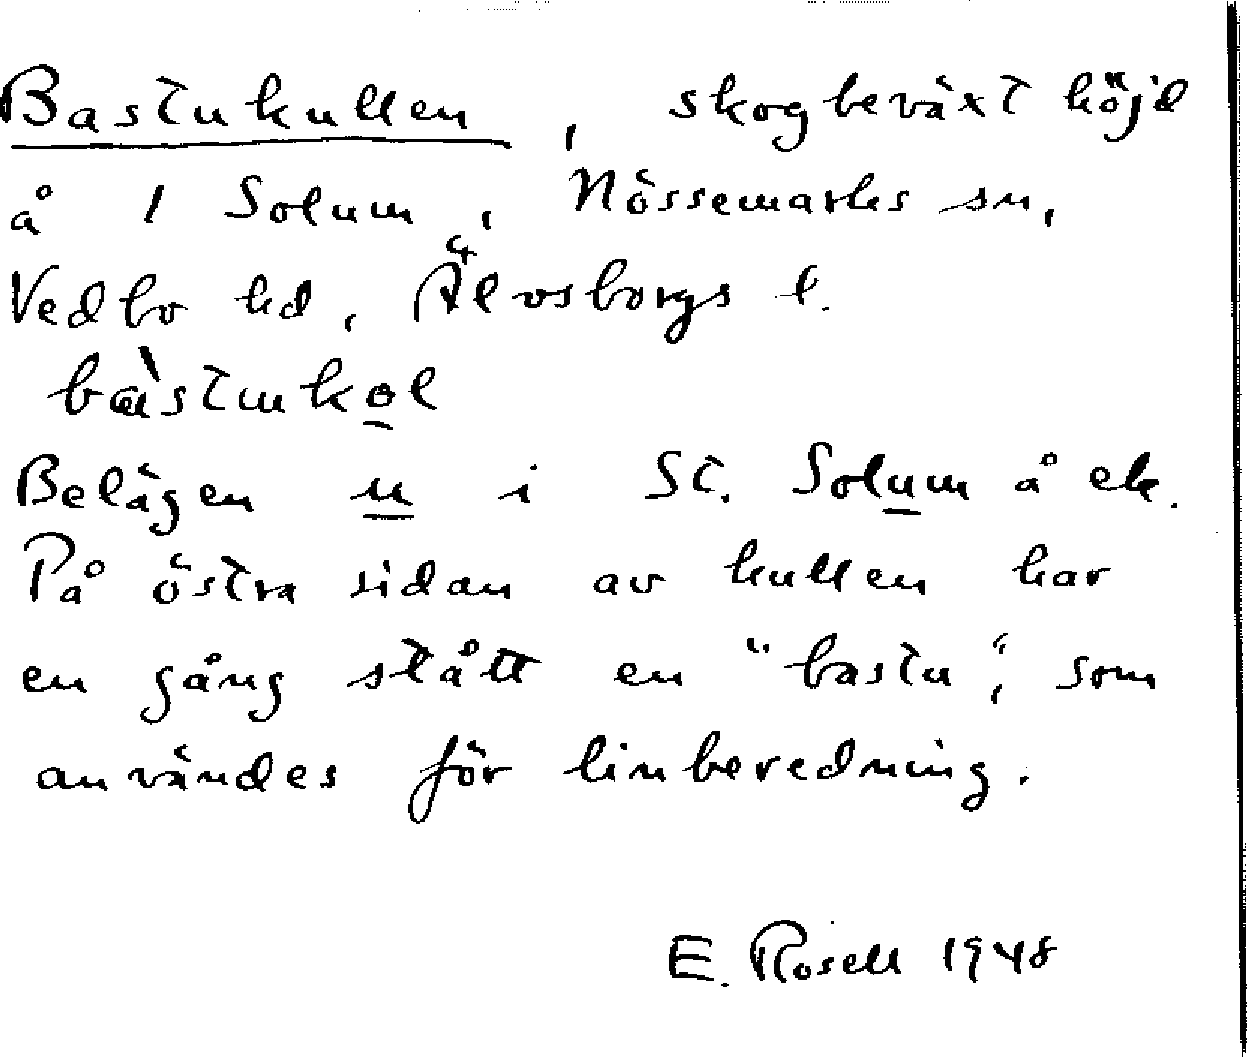 Bastukullen, skogbeväxt höjd
å 1 Solum, Nössemarks sn,
Vedbo hd, Älvsborgs l.
bàstukol
Belägen u i St. Solum å ek.
På östra sidan av kullen har
en gång stått en "bastu", som
användes för linberedning.
E. Rosell 1948